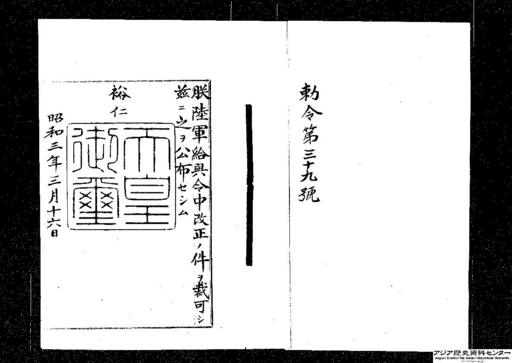 勅令第三十九號
朕陸軍給與令中改正ノ件ヲ裁可シ
茲ニ之ヲ公布セシム
裕仁
天皇御璽
昭和三年三月十六日
アジア歴史資料センター
Japan Center for Asian Historical Records